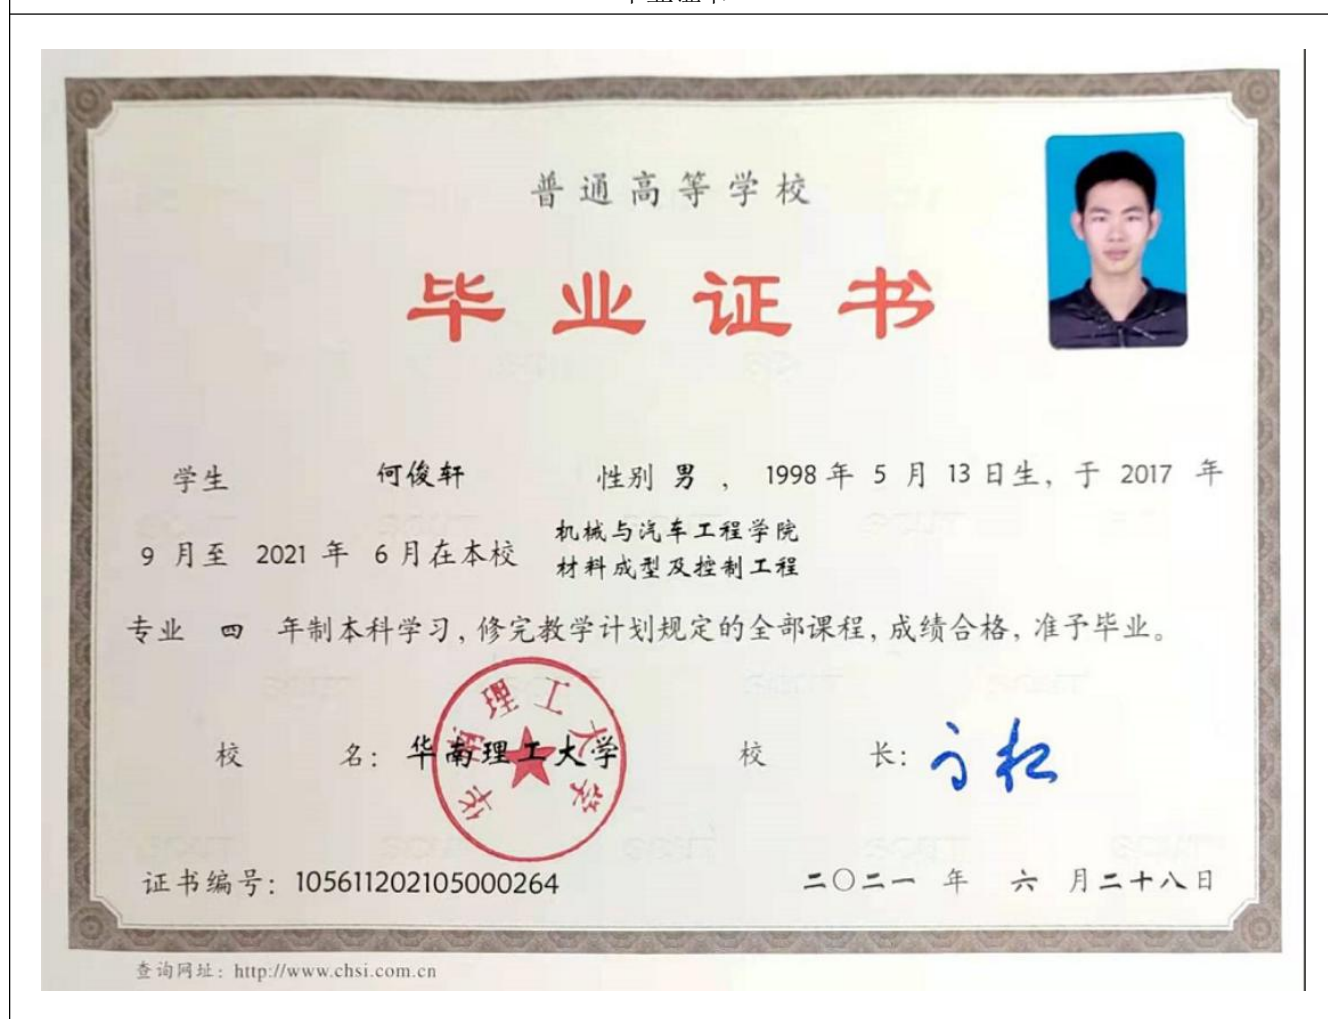 毕业证书
普通高等学校
毕业证书
学生 何俊轩 性别 男 ， 1998 年 5 月 13 日生，于 2017 年
机械与汽车工程学院
9 月至 2021 年 6 月在本校
材料成型及控制工程
专业 四 年制本科学习，修完教学计划规定的全部课程，成绩合格，准予毕业。
华南理工大学
校 名：华南理工大学 校 长：
证书编号：105611202105000264 二〇二一 年 六 月二十八日
查询网址：http://www.chsi.com.cn